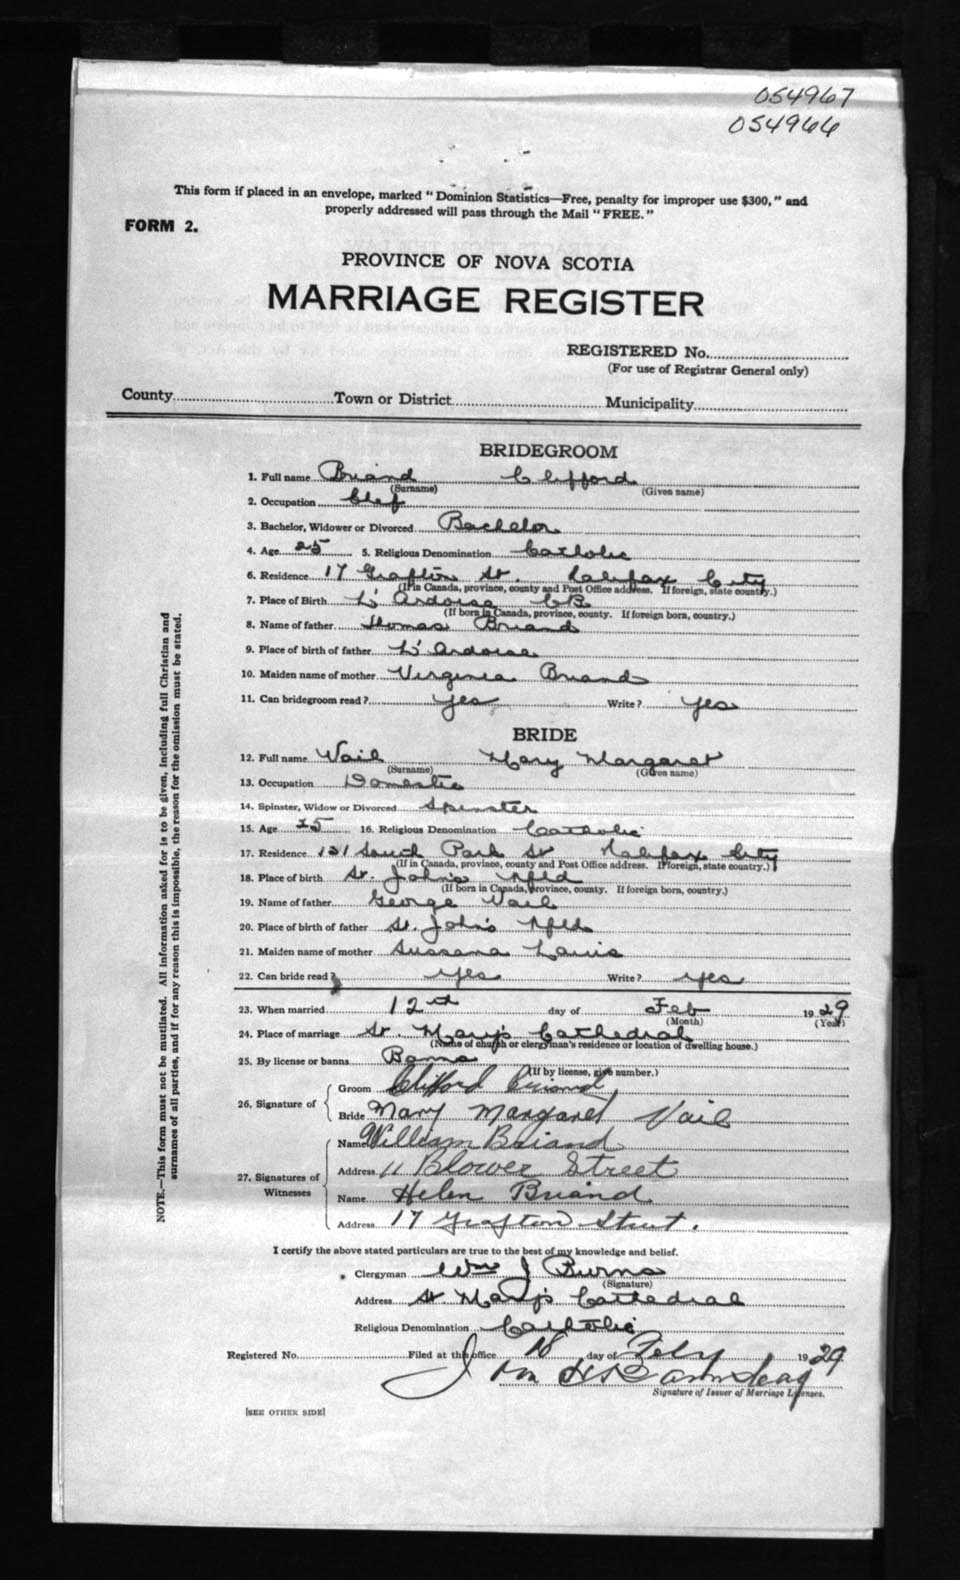 054967
054966
This form if placed in an envelope, marked "Dominion Statistics—Free, penalty for improper use $300," and
properly addressed will pass through the Mail "FREE."
FORM 2.
PROVINCE OF NOVA SCOTIA
MARRIAGE REGISTER
REGISTERED No.
(For use of Registrar General only)
County Town or District Municipality
BRIDEGROOM
1. Full name Briand Clifford
(Surname) (Given name)
2. Occupation Chef
3. Bachelor, Widower or Divorced Bachelor
4. Age 25 5. Religious Denomination Catholic
6. Residence 17 Grafton St. Halifax City
(If in Canada, province, county and Post Office address. If foreign, state country.)
7. Place of Birth L'Ardoise CB
(If born in Canada, province, county. If foreign born, country.)
8. Name of father Thomas Briand
9. Place of birth of father L'Ardoise
10. Maiden name of mother Virginia Briand
11. Can bridegroom read? Yes Write? Yes
BRIDE
12. Full name Vail Mary Margaret
(Surname) (Given name)
13. Occupation Domestic
14. Spinster, Widow or Divorced Spinster
15. Age 25 16. Religious Denomination Catholic
17. Residence 121 South Park St Halifax City
(If in Canada, province, county and Post Office address. If foreign, state country.)
18. Place of birth St. John's Nfld
(If born in Canada, province, county. If foreign born, country.)
19. Name of father George Vail
20. Place of birth of father St. John's Nfld
21. Maiden name of mother Sussana
22. Can bride read? Yes Write? Yes
23. When married 12th day of Feb 1929
(Month) (Year)
24. Place of marriage St. Mary's Cathedral
(Name of church or clergyman's residence or location of dwelling house.)
25. By license or banns Banns
(If by license, give number.)
26. Signature of
Groom Clifford Briand
Bride Mary Margaret Vail
27. Signatures of Witnesses
Name William Briand
Address 11 Blower Street
Name Helen Briand
Address 17 Grafton Street.
I certify the above stated particulars are true to the best of my knowledge and belief.
Clergyman Wm J Burns
(Signature)
Address St. Mary's Cathedral
Religious Denomination Catholic
Registered No. Filed at this office 18 day of Feby 1929
Signature of Issuer of Marriage Licenses.
[SEE OTHER SIDE]
NOTE.—This form must not be mutilated. All information asked for is to be given, including full Christian and
surnames of all parties, and if for any reason this is impossible, the reason for the omission must be stated.